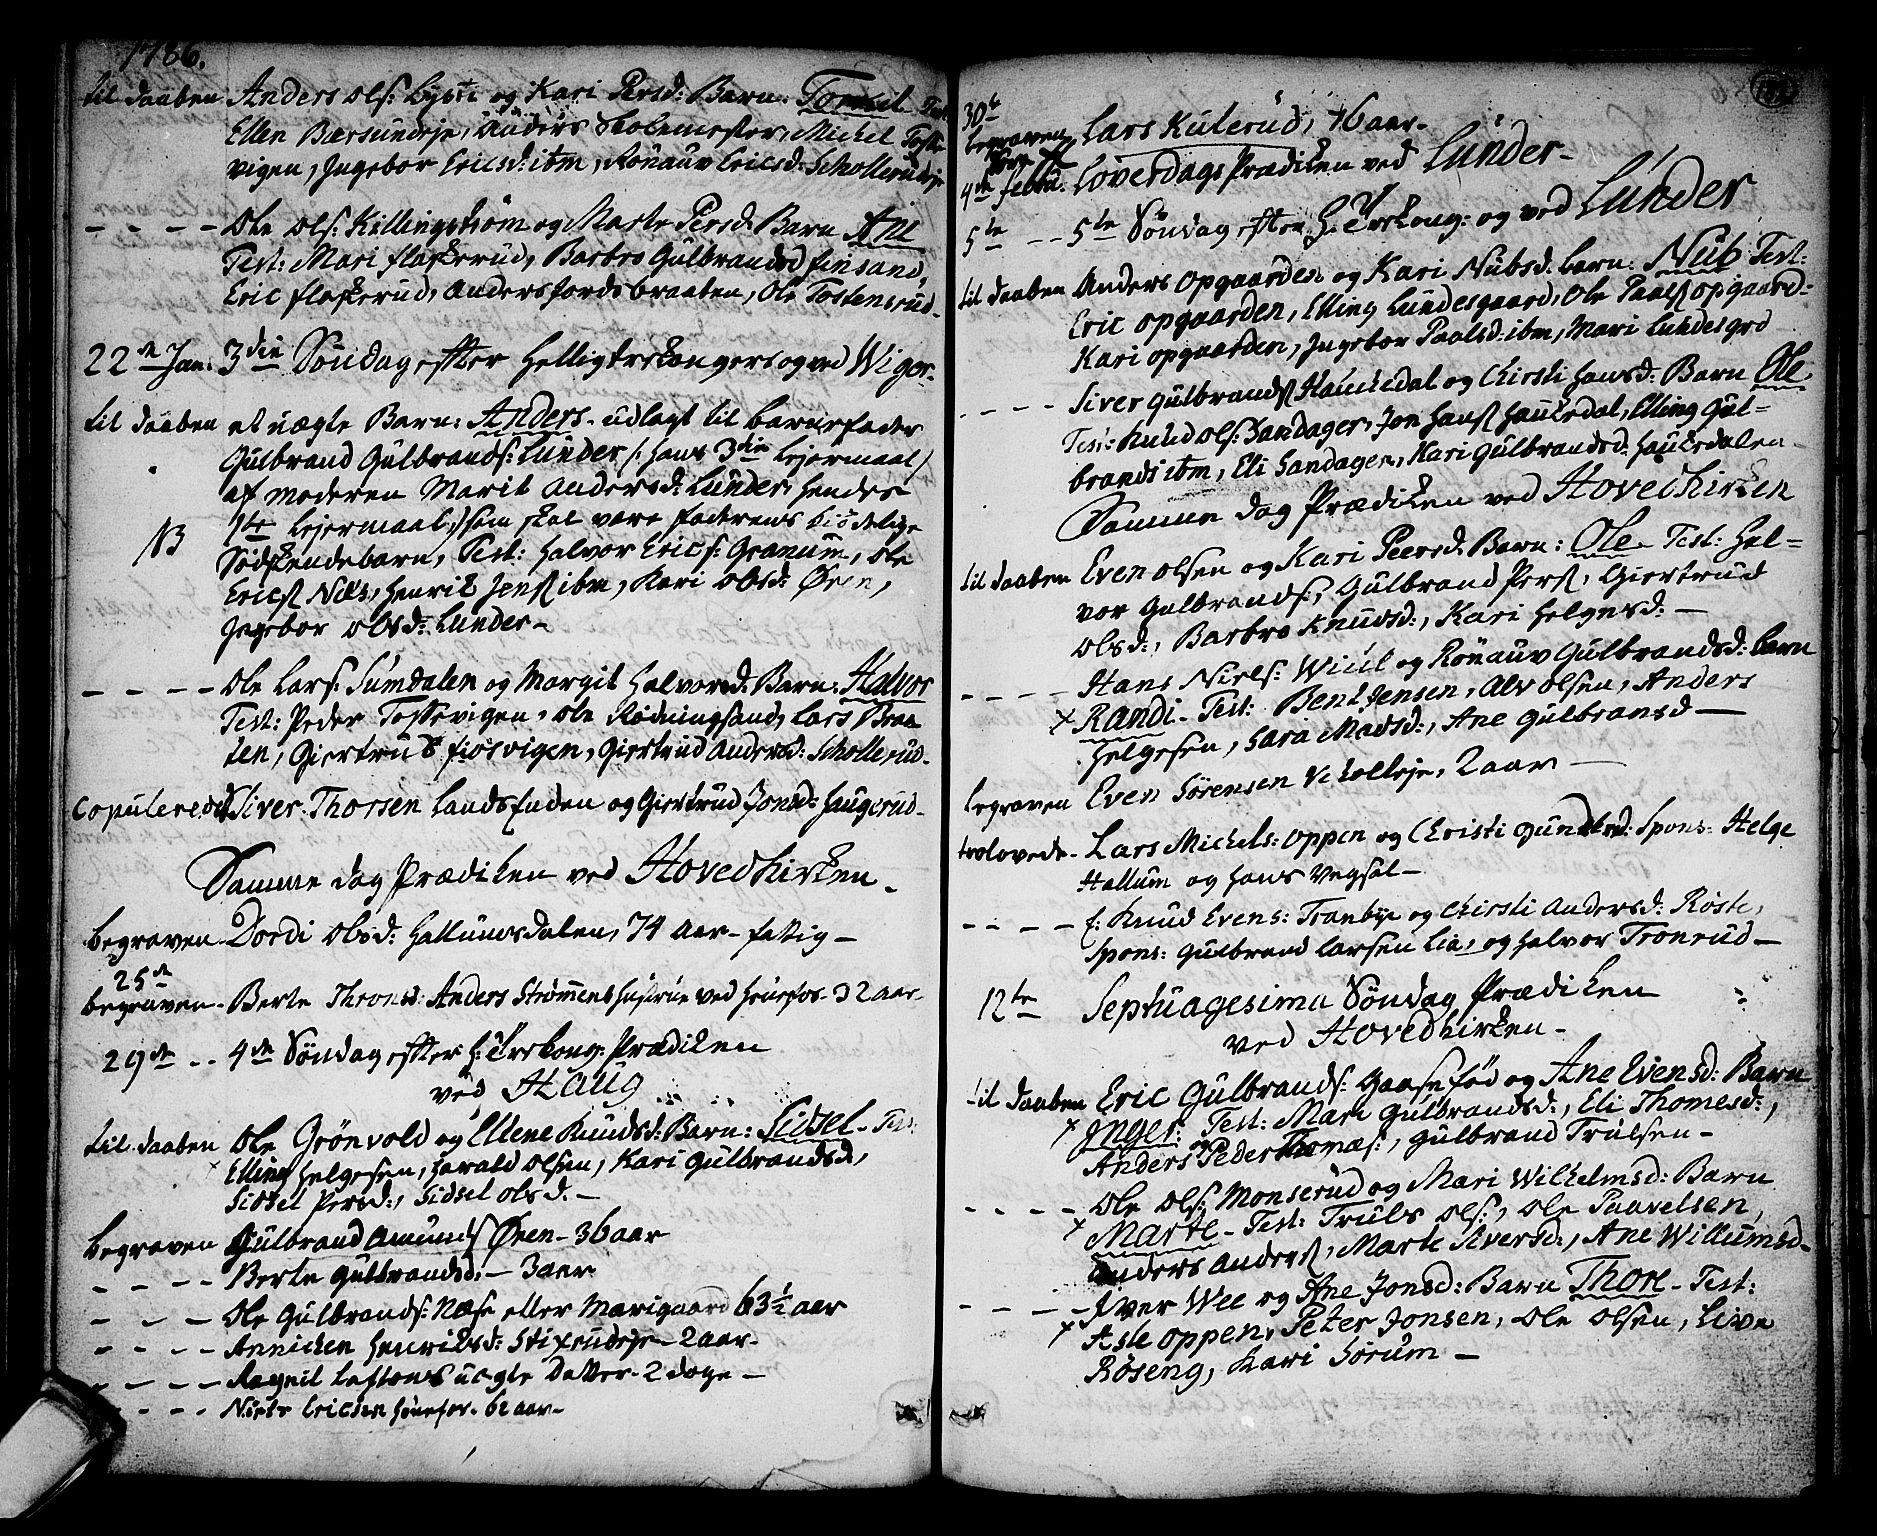 1786.
til daaben Anders Ols: Lyste og Kari Persd: Barn: Test:
Ellen Bærsundeje, Anders Skolemester, Michel Toste-
vigen, Ingebor Ericsd: ibm, Rönauv Ericsd: Scholleru deje
- - - - Ole Ols: Killingström og Marte Persd: Barn Ane
Test: Mari Flaskerud, Barbro Gulbrandsd Finsand,
Eric Flaskerud, Anders Jordsbraaten, Ole Tostensrud.
22de Jan: 3die Söndag efter Helligtrekongers og ved Wiger.
til daaben et uægte Barn: Anders - udlagt til barnefader
Gulbrand Gulbrands: Lunder /: hans 3die Lejermaal /
af moderen Marit Andersd: Lunder, hendes
NB 1te Lejermaal,) som skal være faderens kiödelige
Södskendebarn, Test: Halvor Erics: Granum, Ole
Erics Næs, Henrik Jens ibm, Kari Olsd: Ören,
Ingebor Olsd: Lunder -
- - - - Ole Lars: Sumdalen og Margit Halvorsd: Barn: Halvor
Test: Peder Tossevigen, Ole Rödningsand, Lars Braa
ten, Giertrud Fiösvigen, Giertrud Andersd: Schollerud.
Copulerede Siver Thorsen Landsenden og Giertrud Jonsd: Haugerud.
Samme dag Prædiken ved Hovedkirken.
begraven Dordi Olsd: Hallumsdalen, 74 aar - fattig -
25de
begraven - Berte Thronsd: Anders Strömmens Hustrue ved Hönefos - 32 aar.
29de - - 4de Söndag efter H: Trekong: Prædiken
ved Haug
til daaben Ole Grönvold og Ellene Knudsd: Barn: Sidsel - Test:
Elling Helgesen, Harald Olsen, Kari Gulbrandsd,
Sidsel Persd:, Sidsel Olsd. -
begraven Gulbrand Amunds Ören - 36 aar
- - - - Berte Gulbrandsd: - 3 aar
- - - - Ole Gulbrands: Næse eller Marigaard 63½ aar
- - - - Annichen Henriksd: Stixrudeje - 2 aar -
- - - - Ragnil uægte Datter - 2 dage -
- - - - Niels Ericsen Hönefos - 62 aar -
30te
begraven Lars Kulerud, 46 aar -
4de Febru: Löverdags Prædiken ved Lunder -
5te - - 5te Söndag efter H: Trekong: og ved Lunder
til daaben Anders Opgaarden og Kari Nubsd: barn: Nub Test:
Eric Opgaarden, Elling Lundesgaard, Ole Paals Opgaard-
Kari Opgaarden, Ingebor Paalsd: ibm, Mari Lundesgrd
- - - - Siver Gulbrands Haukedal og Chirsti Hansd: Barn Ole
Test: Knud Ols: Sandager, Jon Hans Haukedal, Elling Gul-
brands ibm, Eli Sandager, Kari Gulbrandsd: Haukedalen.
Samme dag Prædiken ved Hovedkirken
til daaben Even Olsen og Kari Peersd: Barn: Ole - Test: Hal-
vor Gulbrands:, Gulbrand Pers, Giertrud
Olsd:, Barbro Knudsd:, Kari Helgesd: -
- - - - Hans Niels: Wiul og Rönauv Gulbrandsd: barn
x Randi - Test: Bent Jensen, Alv Olsen, Anders
Helgesen, Sara Madsd:, Ane Gulbransd -
begraven Even Sörensen Vekolleje, 2 aar -
trolovede - Lars Michels: Oppen og Christi Spons: Helge
Hallum og Hans Vegsal -
- - - - f: Knud Evens: Tranbye og Chirsti Andersd: Röste,
Spons: Gulbrand Larsen Lia, og Halvor Tronrud -
12te Septuagesima Söndag Prædiken
ved Hovedkirken -
til daaben Eric Gulbrands: Gaaseföd og Ane Evensd: Barn
x Inger: Test: Mari Gulbrandsd:, Eli Thomesd:,
Anders og Peder Thomæs:, Gulbrand Trulsen -
- - - - Ole Ols: Monserud og Mari Wilhelmsd: Barn
x Marte - Test: Truls Ols:, Ole Paavelsen,
Anders Anders, Marte Siversd:, Ane Willumsd -
- - - - Iver Wee og Ane Jonsd: Barn Thore - Test:
x Asle Oppen, Peter Jonsen, Ole Olsen, Live
Röseng, Kari Sörum -